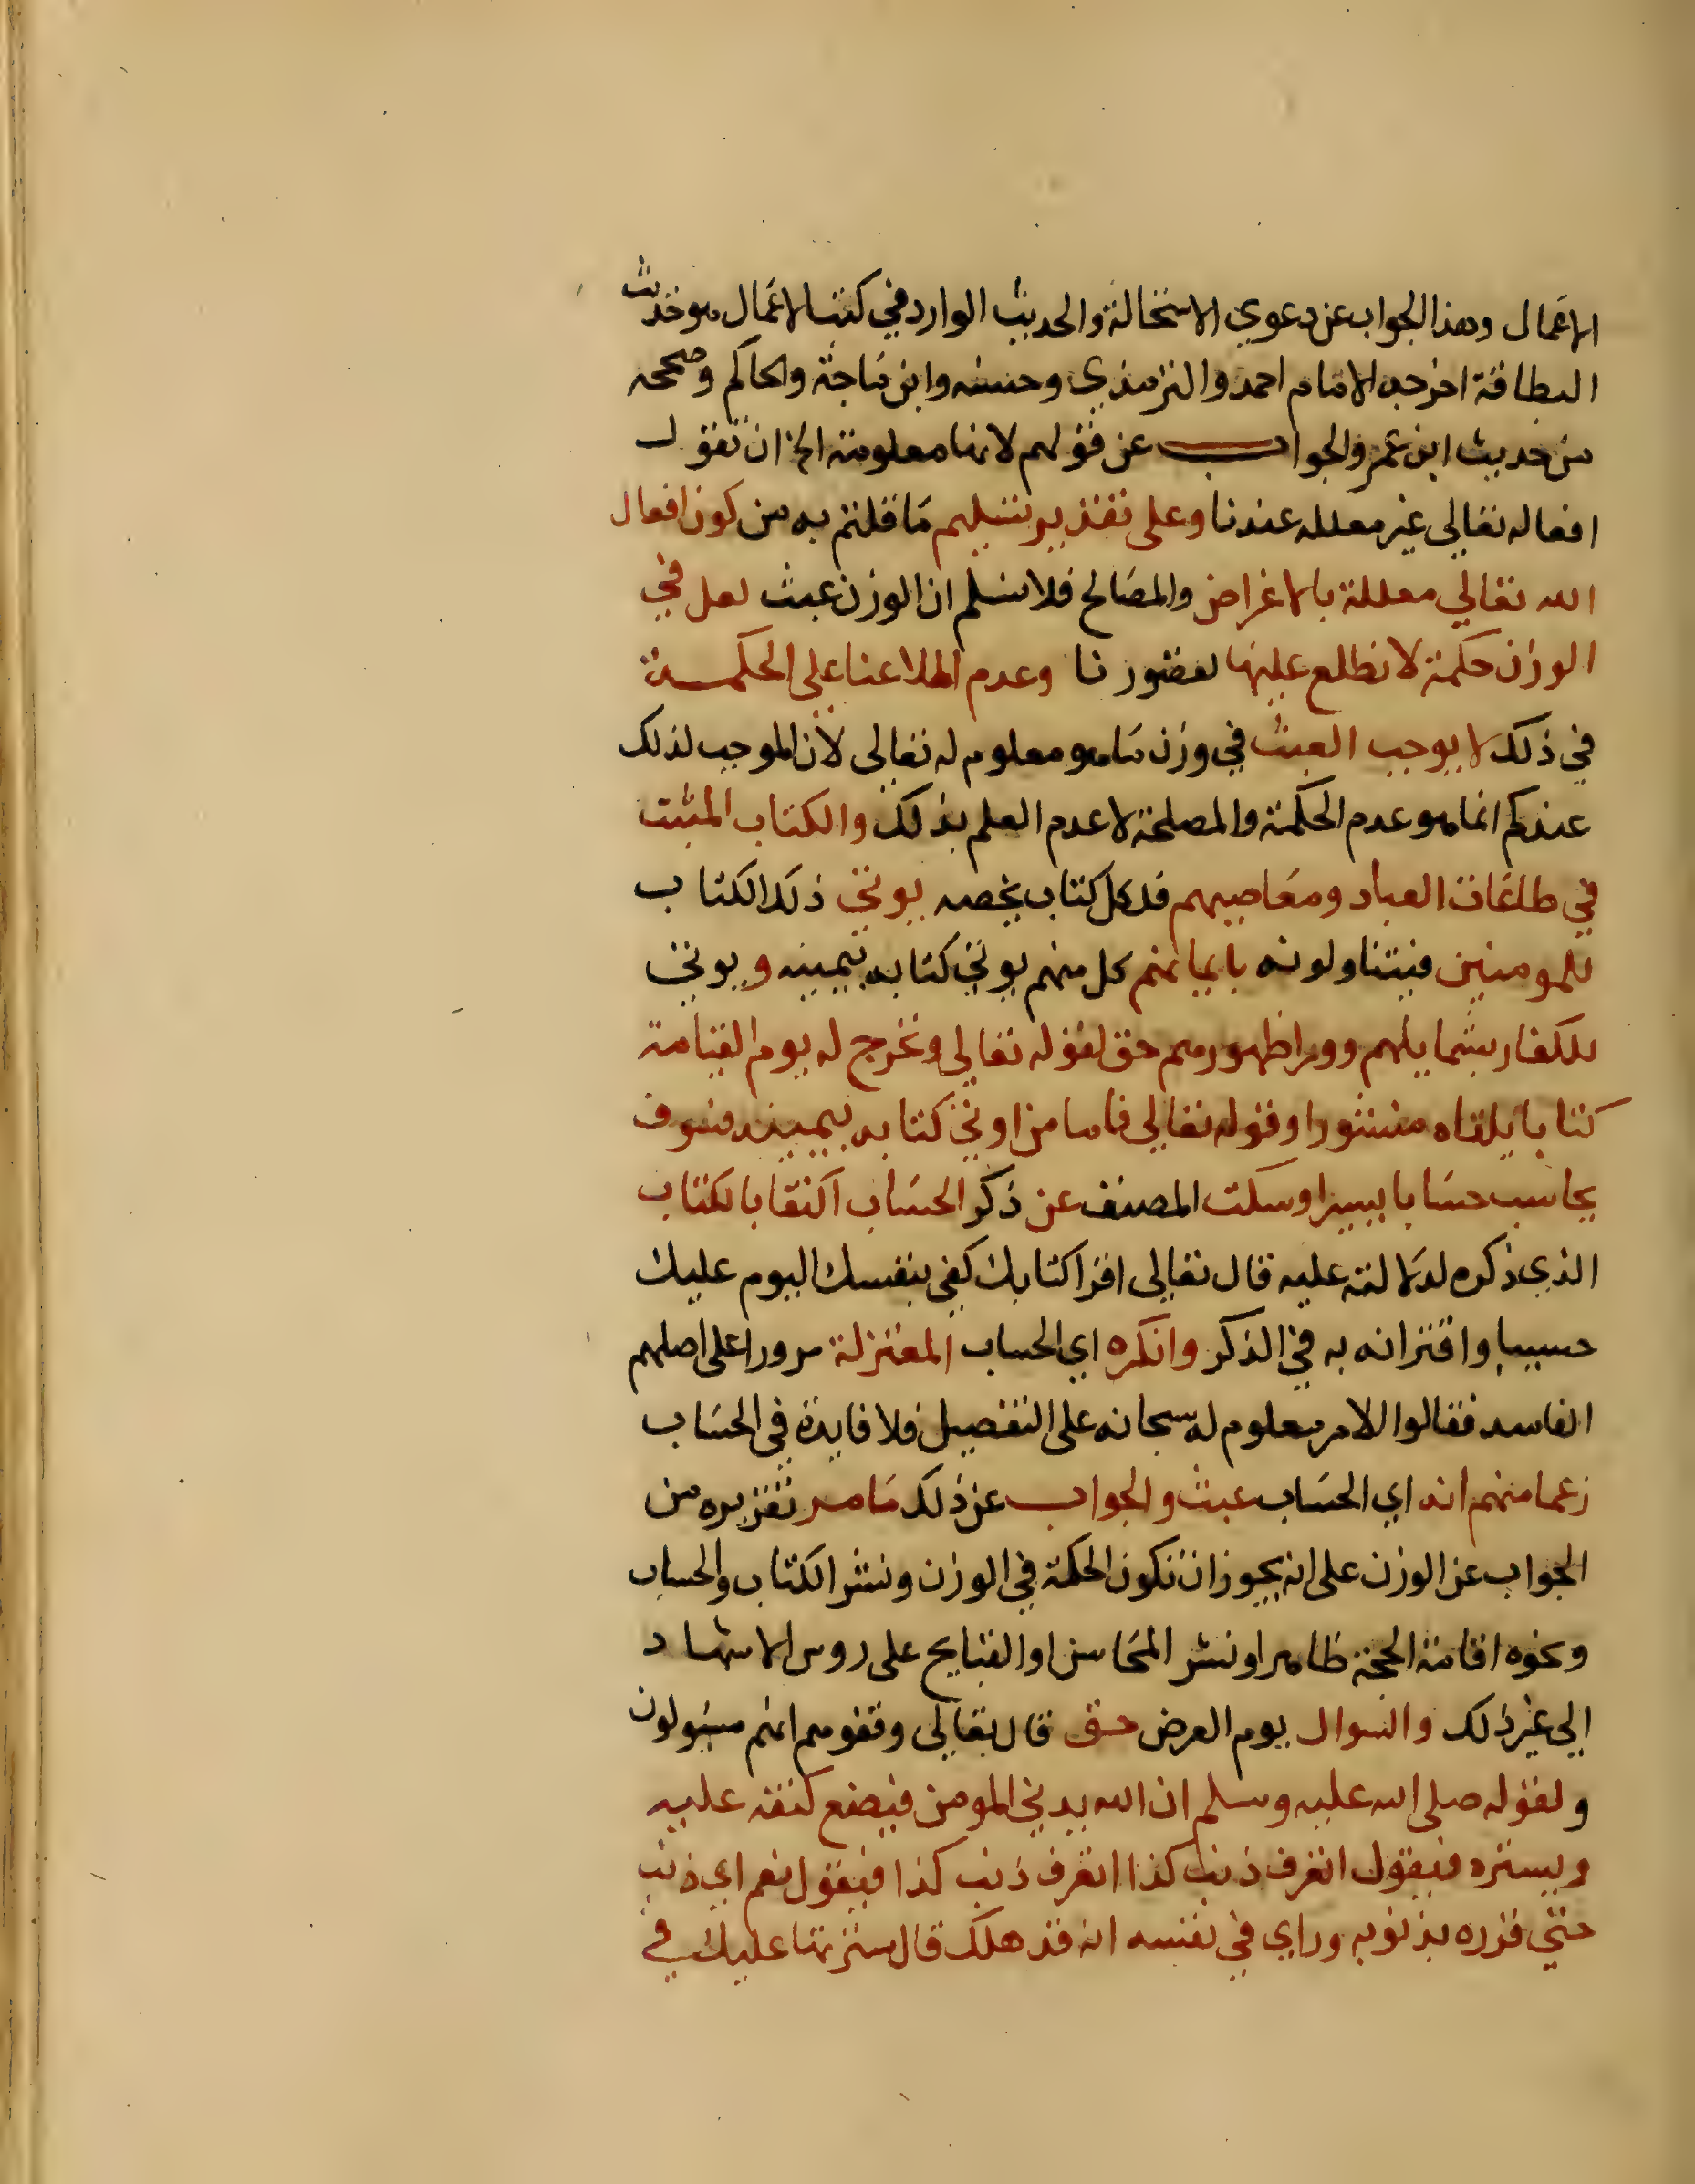 الاعمال وهذا الجواب عن دعوي الاستحالة والحديث الوارد في كتب الاعمال هو حديث
البطاقة اخرجه الامام احمد والترمذي وحسنه وابن ماجة والحاكم وصححه
من حديث ابن عمر والجواب عن قولهم لانها معلومة الخ ان نقول
افعاله تعالى غير معلله عندنا وعلى تقدير تسليم ما قلتم به من كون افعال
الله تعالي معللة بالاغراض والمصالح فلا نسلم ان الوزن عبث لعل في
الوزن حكمة لا نطلع عليها لقصورنا وعدم اطلاعنا على الحكمة
في ذلك لا يوجب العبث في وزن ما هو معلوم له تعالى لان الموجب لذلك
عندكم انما هو عدم الحكمة والمصلحة لا عدم العلم بذلك والكتاب المثبت
في طاعات العباد ومعاصيهم فلكل كتاب يخصه يوتي ذلك الكتاب
للمومنين فيتناولونه بايمانهم كل منهم يوتي كتابه بيمينه ويوتي
للكفار بشمايلهم وورا ظهورهم حق لقوله تعالى ونخرج له يوم القيامة
كتابا يلقاه منشورا وقوله تعالى فاما من اوتي كتابه بيمينه فسوف
يحاسب حسابا يسيرا وسكت المصنف عن ذكر الحساب اكتفا بالكتاب
الذي ذكره لدلالته عليه قال تعالى اقرا كتابك كفى بنفسك اليوم عليك
حسيبا واقترانه به في الذكر وانكره اي الحساب المعتزلة مرورا على اصلهم
الفاسد فقالوا الامر معلوم له سبحانه على التفصيل فلا فايدة في الحساب
زعما منهم انه اي الحساب عبث والجواب عن ذلك ما مر تقريره من
الجواب عن الوزن على انه يجوز ان تكون الحكمة في الوزن ونشر الكتاب والحساب
ونحوه اقامة الحجة ظاهرا ونشر المحاسن او القبايح على روس الاشهاد
الى غير ذلك والسوال يوم العرض حق قال تعالى وقفوهم انهم مسئولون
ولقوله صلى الله عليه وسلم ان الله يدني المومن فيضع كنفه عليه
ويستره فيقول اتعرف ذنب كذا اتعرف ذنب كذا فيقول نعم اي ذنب
حتي قرره بذنوبه وراي في نفسه انه قد هلك قال سترتها عليك في